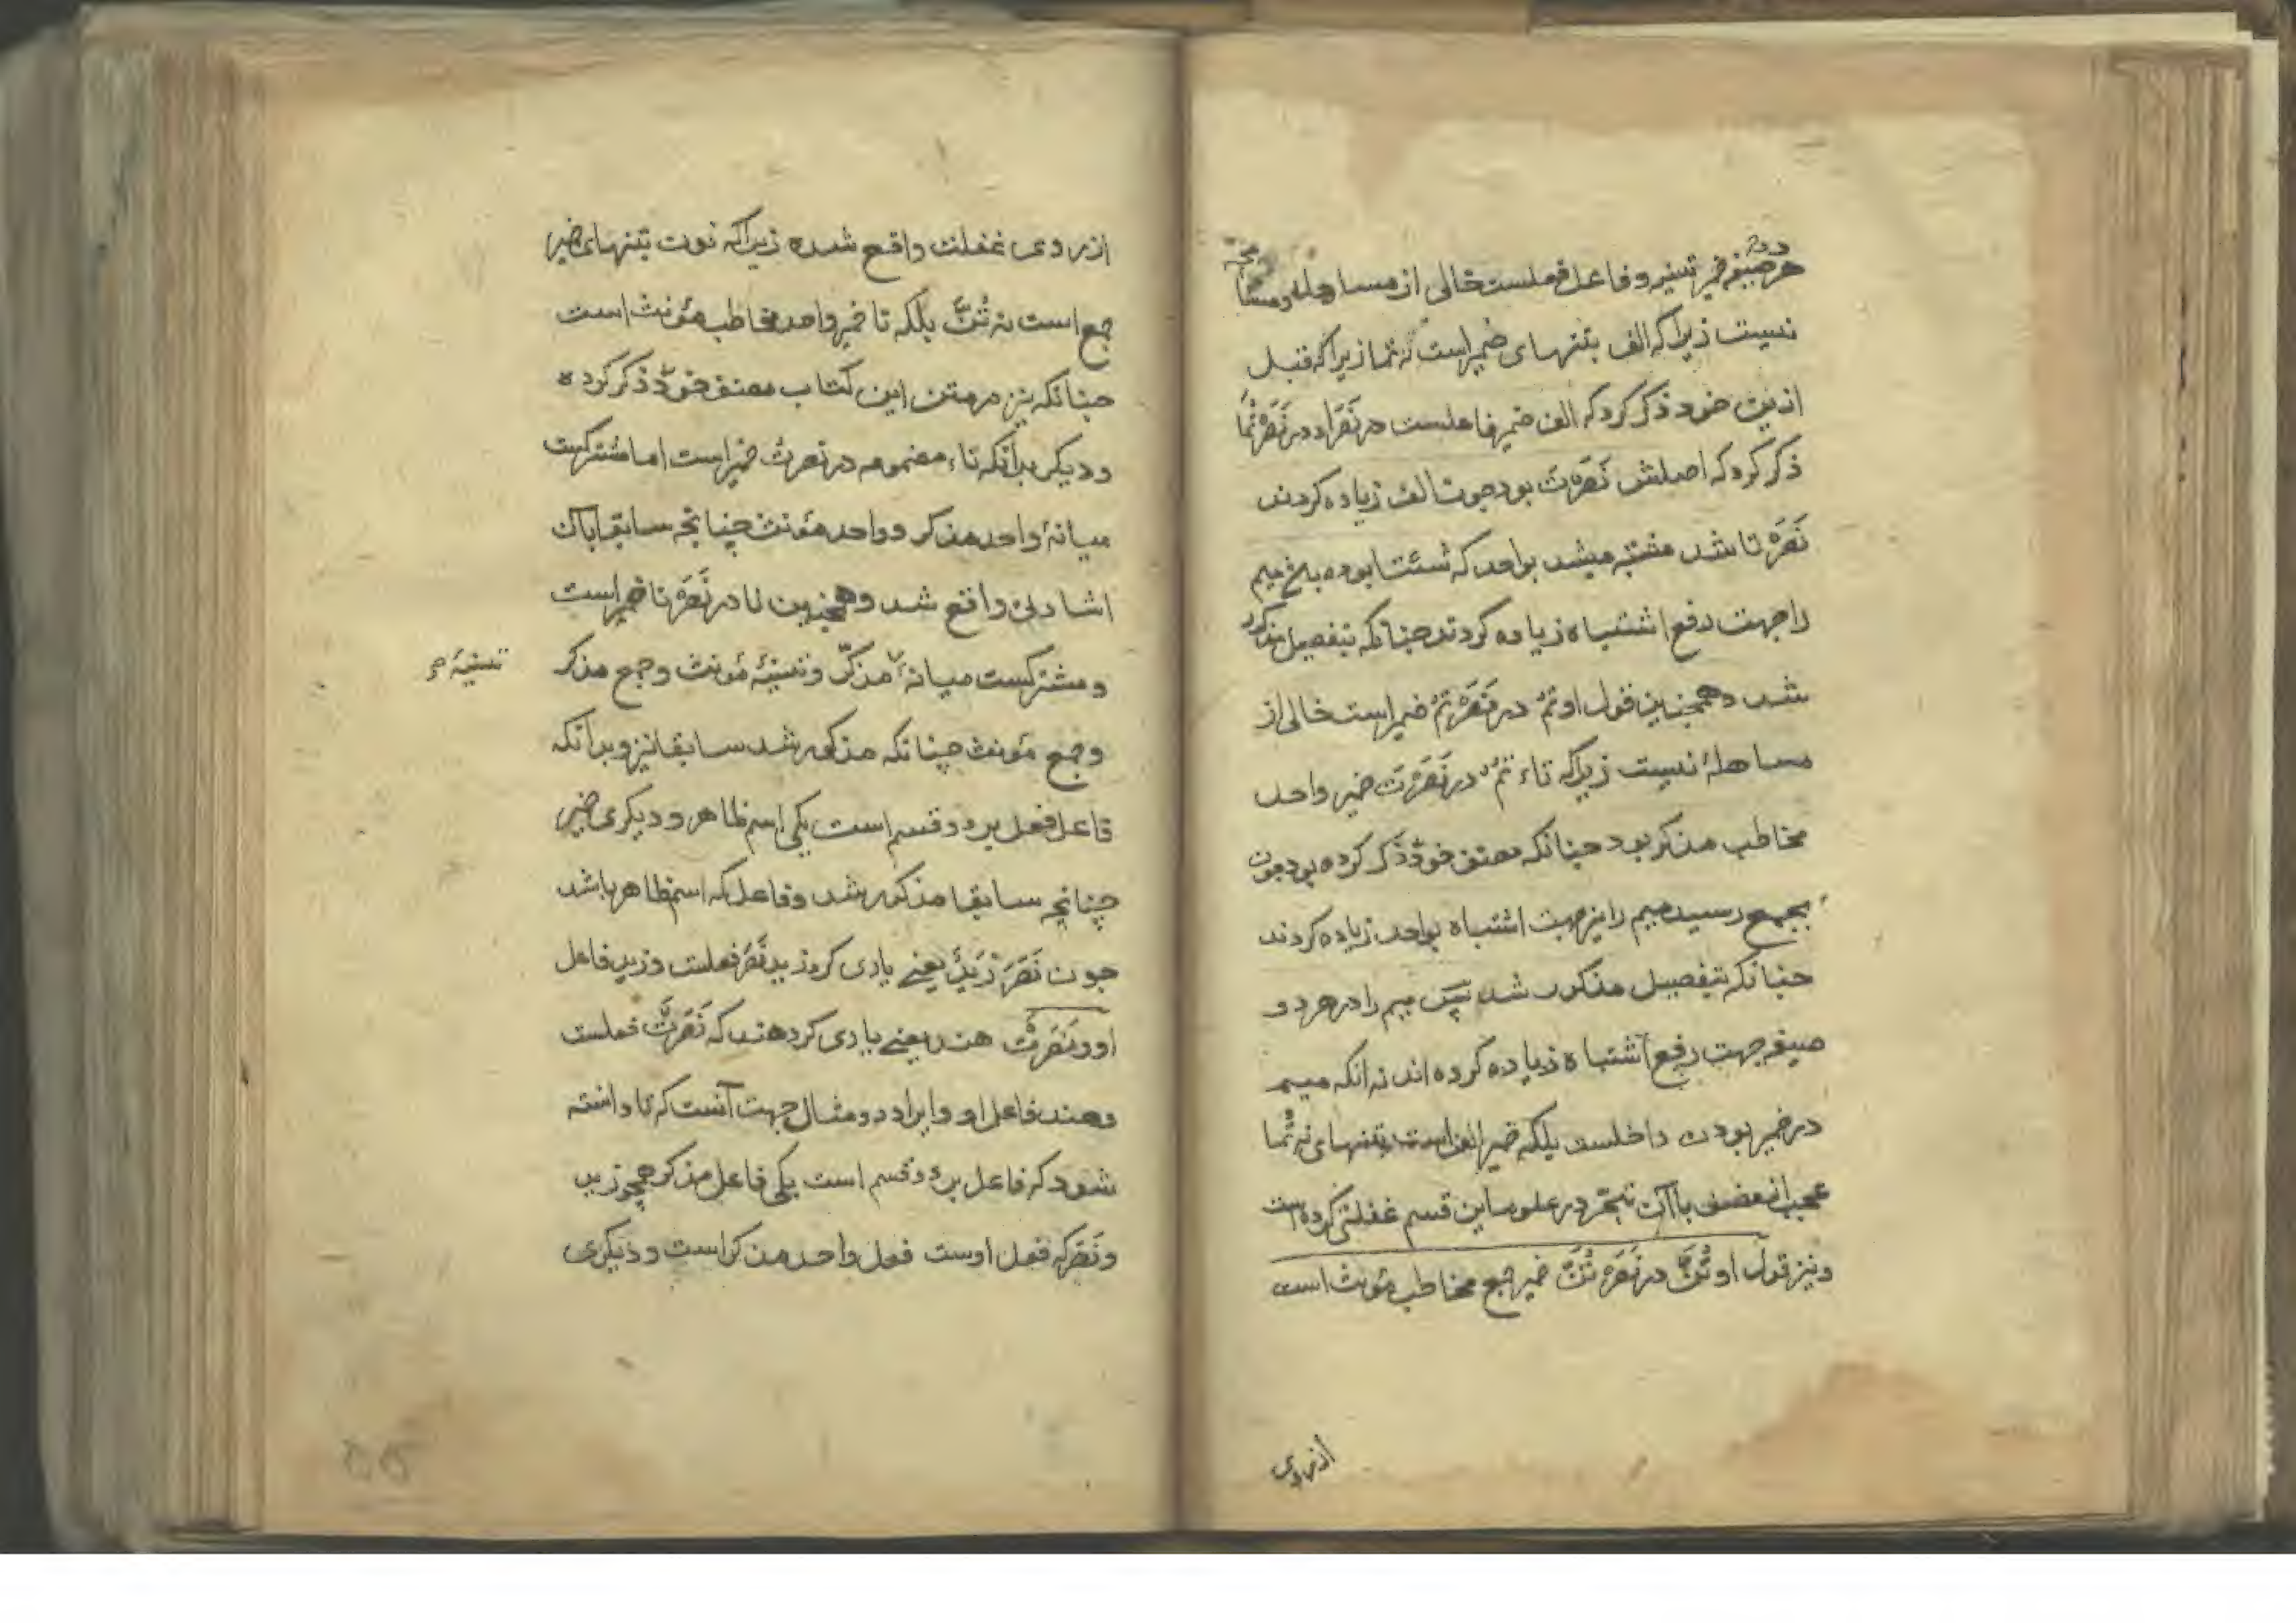 هر دو صیغه ضمیر تثنیه و فاعل فعلست خالی از مساهله و مسامحه
نسیت زیراکه الف بتنهای ضمیر است نه تما زیراکه قبل
ازین خود ذکر کرد که الف ضمیر فاعلست در نَصَرَا و در نَصَرْتُمَا
ذکر کرد که اصلش نَصَرْتَ بود چون الف زیاده کردند
نَصَرْتَا شد مشتبه میشد بواحد که اشباع بوده پس میم
را جهت دفع اشتباه زیاده کردند چنانکه بتفصیل مذکور
شد و همچنین قول او تُمْ در نَصَرْتُمْ ضمیر است خالی از
مساهلهٔ نسیت زیراکه تاء تُمْ در نَصَرْتَ ضمیر واحد
مخاطب مذکر بود چنانکه مصنف خود ذکر کرده بود چون
بجمع رسید میم را نیز جهت اشتباه بواحد زیاده کردند
چنانکه بتفصیل مذکور شد پس میم را در هر دو
صیغه جهت رفع اشتباه زیاده کرده اند نه انکه میم
در ضمیر بودن داخلست بلکه ضمیر الف است بتنهای نه تُما
عجب از مصنف باآن تبحّر در علوم این قسم غفلتی کرده است
و نیز قول او تُنَّ در نَصَرْتُنَّ ضمیر جمع مخاطب مؤنث است
ازروی
ازروی غفلت واقع شده زیراکه نون بتنهای ضمیر
جمع است نه تُنَّ بلکه تا ضمیر واحد مخاطب مؤنث است
چنانکه نیز در متن این کتاب مصنف خود ذکر کرده
و دیکر بدانکه تاء مضمومه در نصرت ضمیر است اما مشترکست
میانهٔ واحد مذکر و واحد مؤنث چنانچه سابقا بآن
اشارهٔ واقع شد و همچنین نا در نَصَرْنا ضمیر است
و مشترکست میانهٔ مذکّر و تثنیهٔ مؤنث و جمع مذکر
تثنیهٔ م
و جمع مؤنث چنانکه مذکور شد سابقا نیز و بدانکه
فاعل فعل بر دو قسم است یکی اسم ظاهر و دیکری ضمیر
چنانچه سابقا مذکور شد و فاعل که اسم ظاهر باشد
چون نَصَرَ زَیْدٌ یعنی یاری کرد زید نَصَرَ فعلست و زید فاعل
او و نَصَرَتْ هند یعنی یاری کرد هند که نَصَرَتْ فعلست
و هند فاعل او و ایراد دو مثال جهت آنست که تا دانسته
شود که فاعل بر دو قسم است یکی فاعل مذکر همچو زید
و نَصَرَ که فعل اوست فعل واحد مذکر است و دیکری